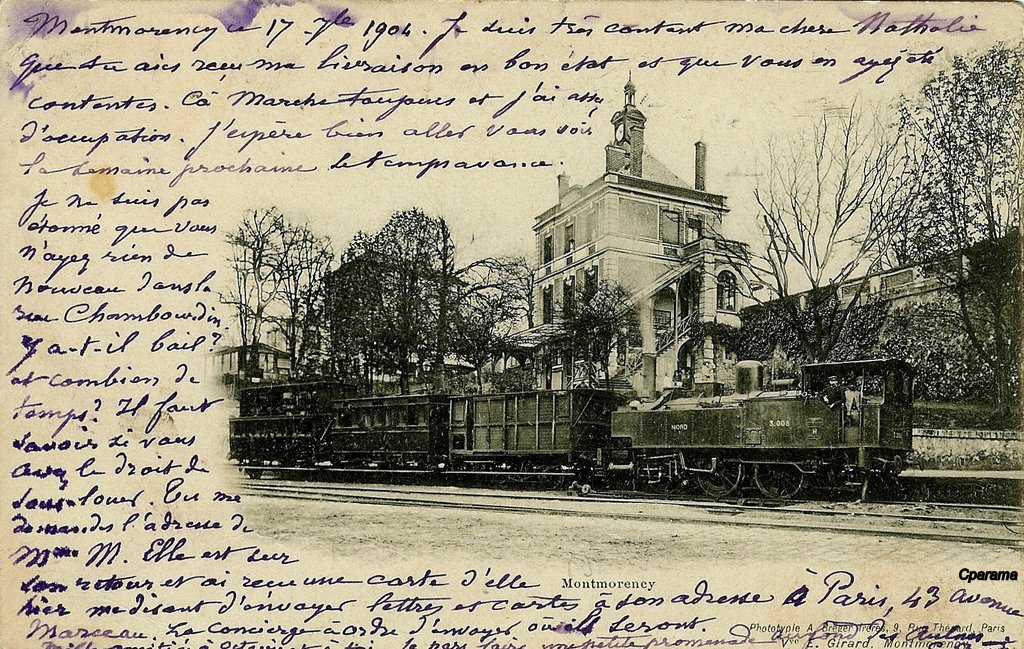 Montmorency le 17 7bre 1904. Je suis très content ma chère Nathalie
que tu aies reçu ma livraison en bon état et que vous en ayez été
contentes. Cà marche toujours et j'ai assez
d'occupation. J'espère bien aller vous voir
la semaine prochaine le temps avance.
Je ne suis pas
étonné que vous
n'ayez rien de
nouveau dans la
rue Chambourdin
Y a-t-il bail?
et combien de
temps? Il faut
savoir si vous
avez le droit de
sous-louer. Tu me
demandes l'adresse de
Mme M. Elle est sur
son retour et ai reçu une carte d'elle
hier me disant d'envoyer lettres et cartes à son adresse à Paris, 43 avenue
Marceau. La concierge a ordre d'envoyer où ils seront.
Mille amitiés à et à toi. Je pars faire une petite promenade au fond des
NORD
3.006
Montmorency
Cparama
Phototypie A. Breger frères, 9, Rue Thénard, Paris
Vve E. Girard, Montmorency